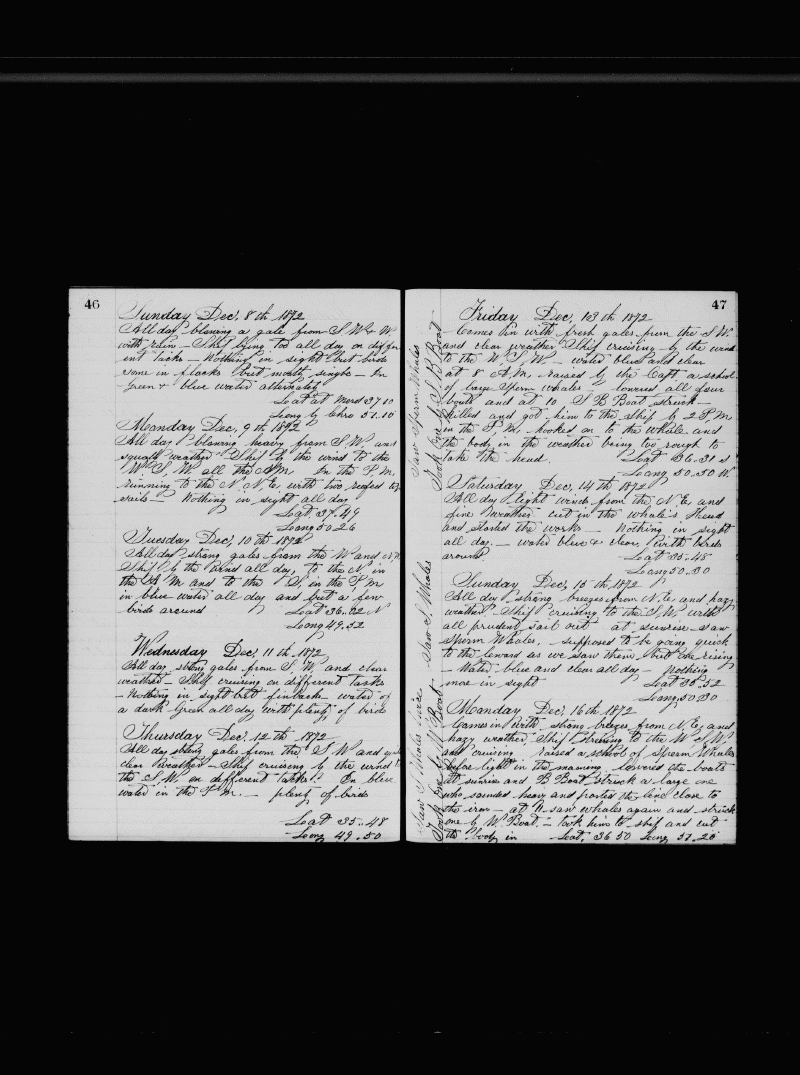 46
Sunday Dec, 8th 1872
All day blowing a gale from S W & W
with rain – Ship lying too all day on differ
ent tacks – Nothing in sight but birds
some in flocks but mostly single – In
Green & blue water alternately
Lat at Merd 37,10
Long by Chro 51.10
Monday Dec, 9th 1872
All day blowing heavy from S W, and
squally weather – Ship by the wind to the
W S W all the A M In the P, M,
running to the N N E, with two reefed top
sails – Nothing in sight all day
Lat 37.49
Long 50.26
Tuesday Dec, 10th 1872
All day strong gales from the W and
Ship by the wind all day, to the N, in
the A M and to the S, in the P M
in blue water all day and but a few
birds around Lat 36..32 N
Long 49.52
Wednesday Dec, 11th, 1872
All day strong gales from S W, and clear
weather – Ship cruising on different tacks
– Nothing in sight but finbacks water of
a dark Green all day with plenty of birds
Thursday Dec, 12th 1872
All day strong gales from the S W and
clear Weather – Ship cruising by the wind
the S W, on different tacks. In blue
water in the P.M. – plenty of birds
Lat 35..48
Long 49..50
47
Friday Dec, 13th 1872
Comes in with fresh gales from the S W,
and clear weather Ship cruising by the wind
to the W S W – water blue and clear
at 8 A.M, raised by the Capt a school
of large Sperm whales – lowered all four
boats and at 10, S B Boat struck –
killed and got him to the ship by 2 P, M
in the P M, hooked on to the whale and
the body in the weather being too rough to
take the head. Lat 36..31 S
Long 50..30 W
Saturday Dec, 14th 1872
All day light winds from the N E, and
fine Weather cut in the whale's Head
and started the works – Nothing in sight
all day – water blue & clear, With birds
around Lat 35..48
Long 50..30
Sunday Dec, 15th, 1872
All day strong breezes from N E, and hazy
weather – Ship cruising to the S W, with
all prudent sail out at sunrise – saw
Sperm Whales, – supposed to be going quick
to the leward as we saw them but one rising
– Water blue and clear all day – Nothing
more in sight Lat 35,52
Long, 50 30
Monday Dec, 16th 1872
Comes in with strong breezes from N, E, and
hazy weather, Ship to the W S W
and cruising raised a school of Sperm Whales
before light in the morning lowered the boats
at sunrise and B Boat struck a large one
who sounded heavy and parted the line close to
the iron – at 11 saw whales again and struck
one by W, Boat. – took him to ship and cut
the body in Lat, 36 50 Long 51..20
Saw Sperm Whales
Took One by S B Boat
Saw S, Whales
Saw S, Whales twice
Took One by W Boat